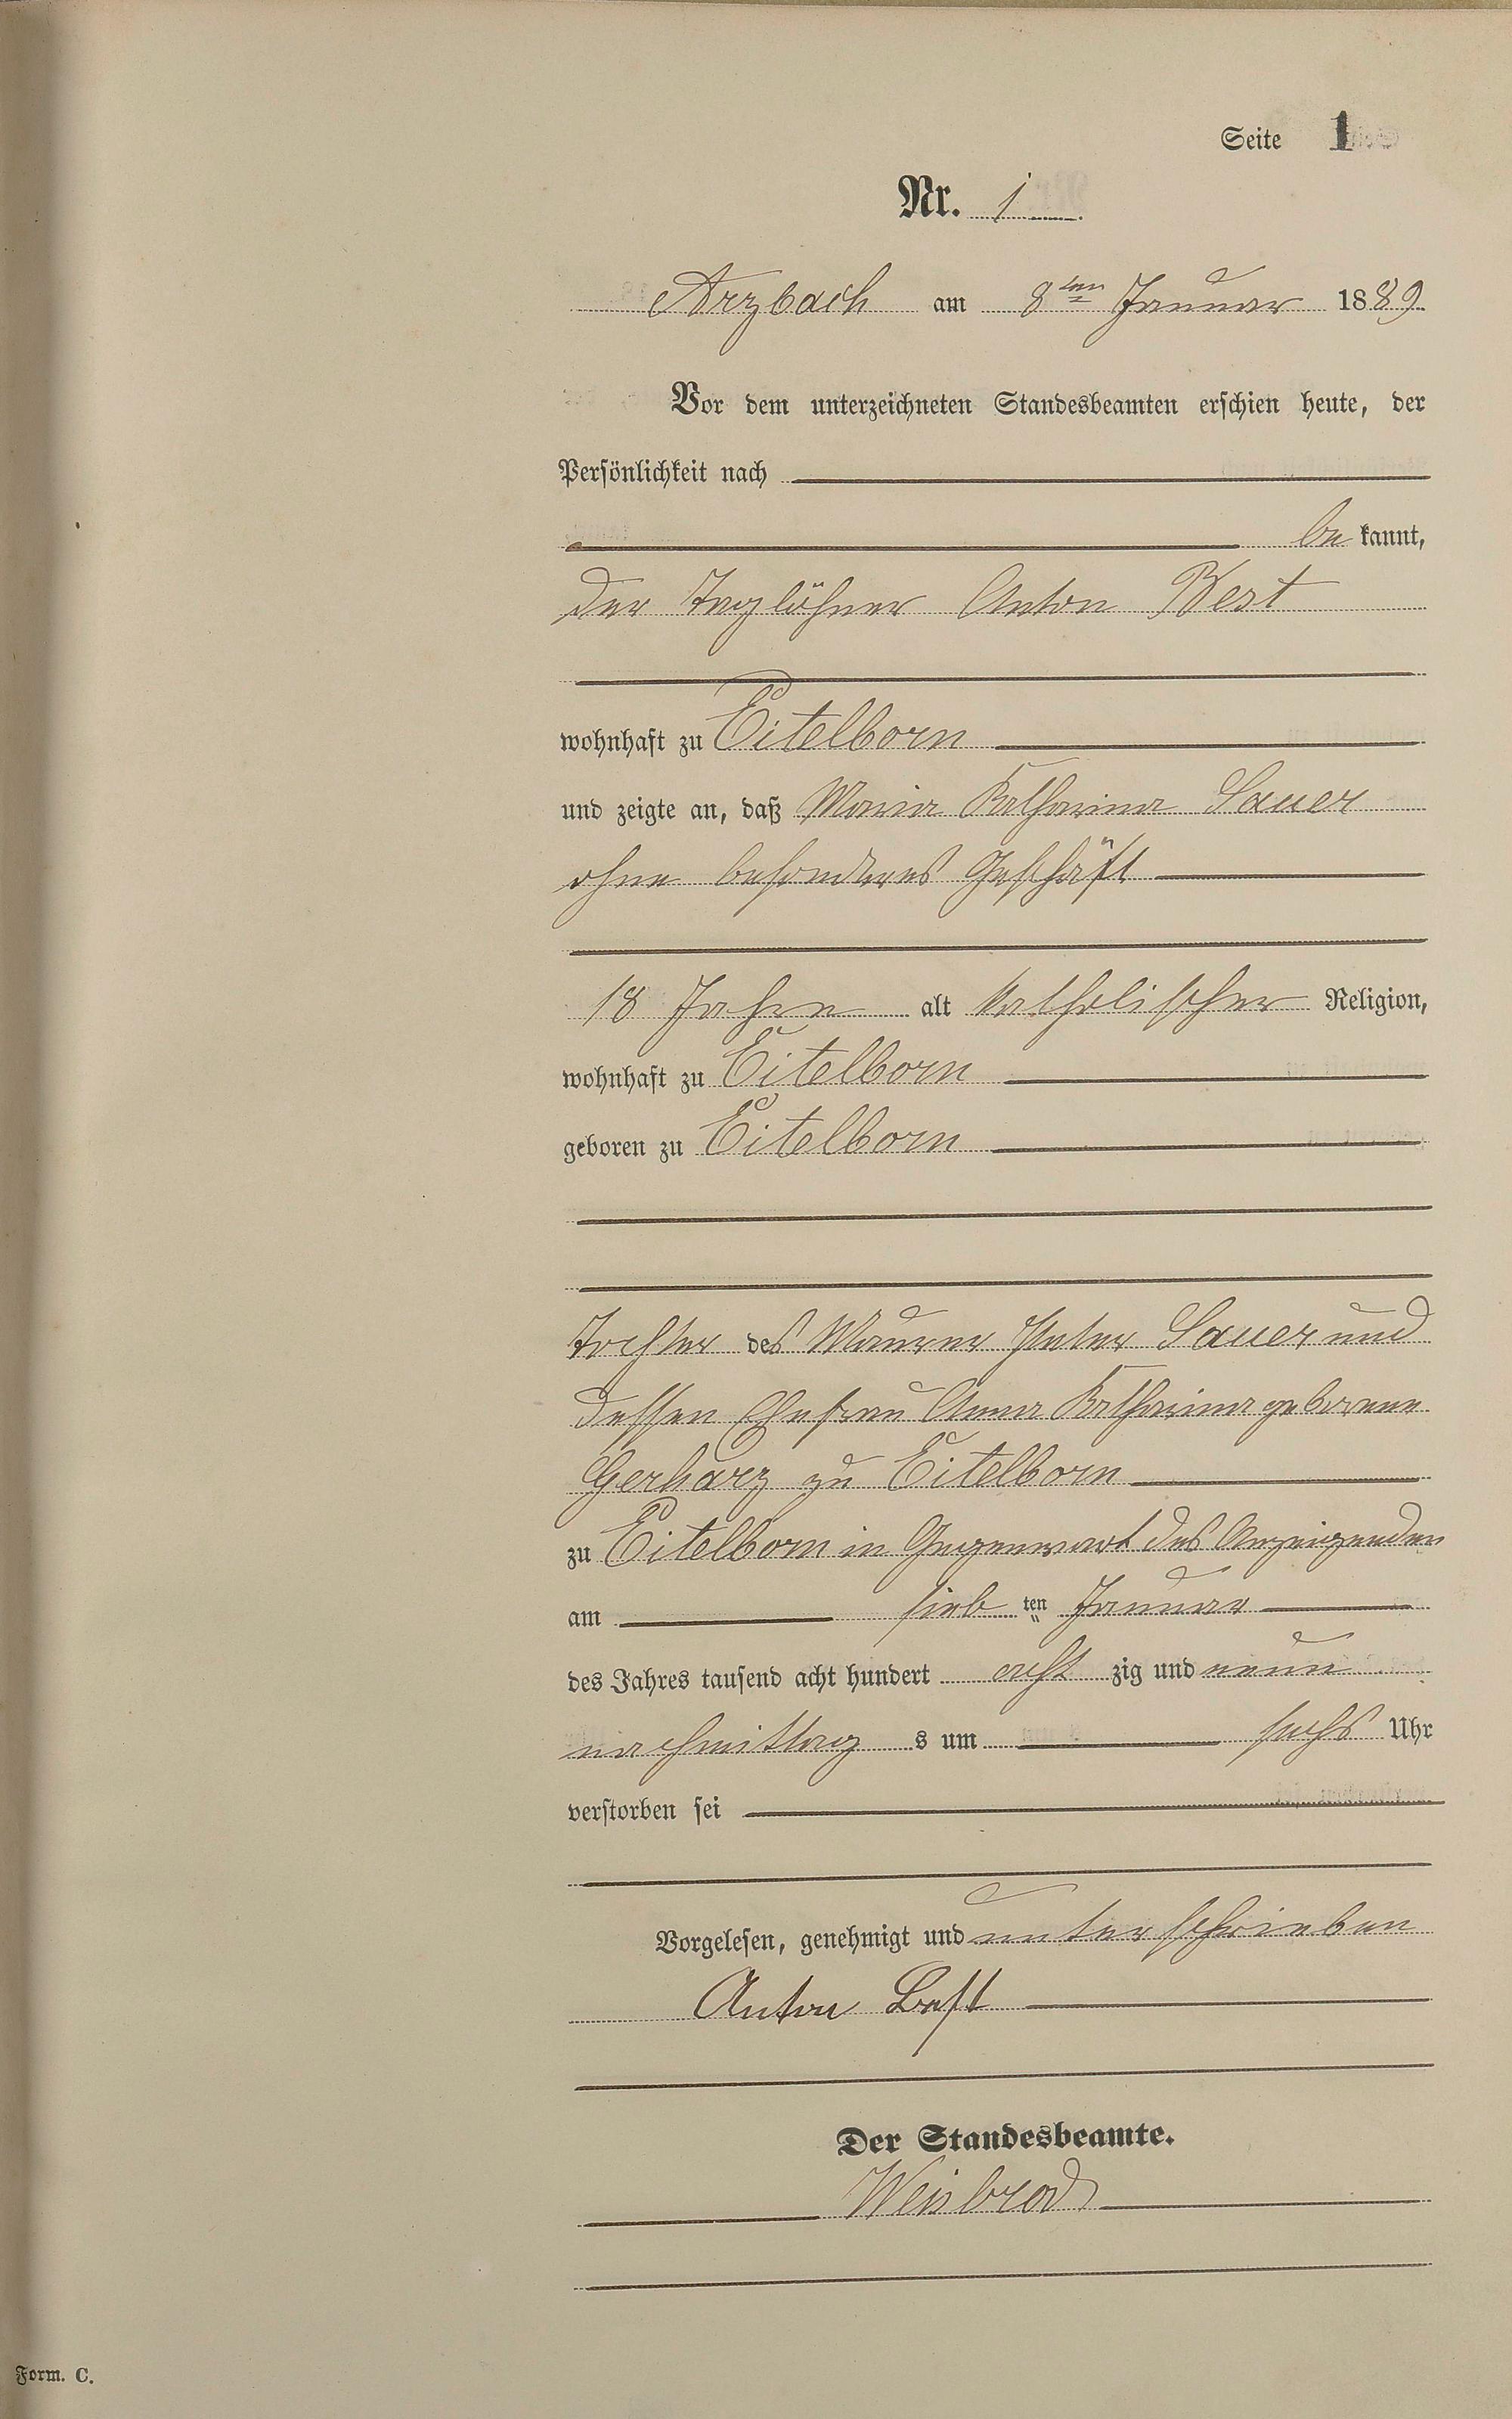 Seite 1
Nr. 1
Arzbach am 8ten Januar 1889
Vor dem unterzeichneten Standesbeamten erschien heute, der
Persönlichkeit nach
bekannt,
der Taglöhner Anton Best
wohnhaft zu Eitelborn
und zeigte an, daß Maria Katharina Sauer
ohne besonderes Geschäft
18 Jahre alt katholischer Religion,
wohnhaft zu Eitelborn
geboren zu Eitelborn
Tochter des Maurer Peter Sauer und
dessen Ehefrau Anna Katharina geborene
Gerharz zu Eitelborn
zu Eitelborn in Gegenwart des Anzeigenden
am siebten Januar
des Jahres tausend acht hundert achtzig und neun
nachmittags um sechs Uhr
verstorben sei
Vorgelesen, genehmigt und unterschrieben
Anton Best
Der Standesbeamte.
Weisbrod
Form. C.